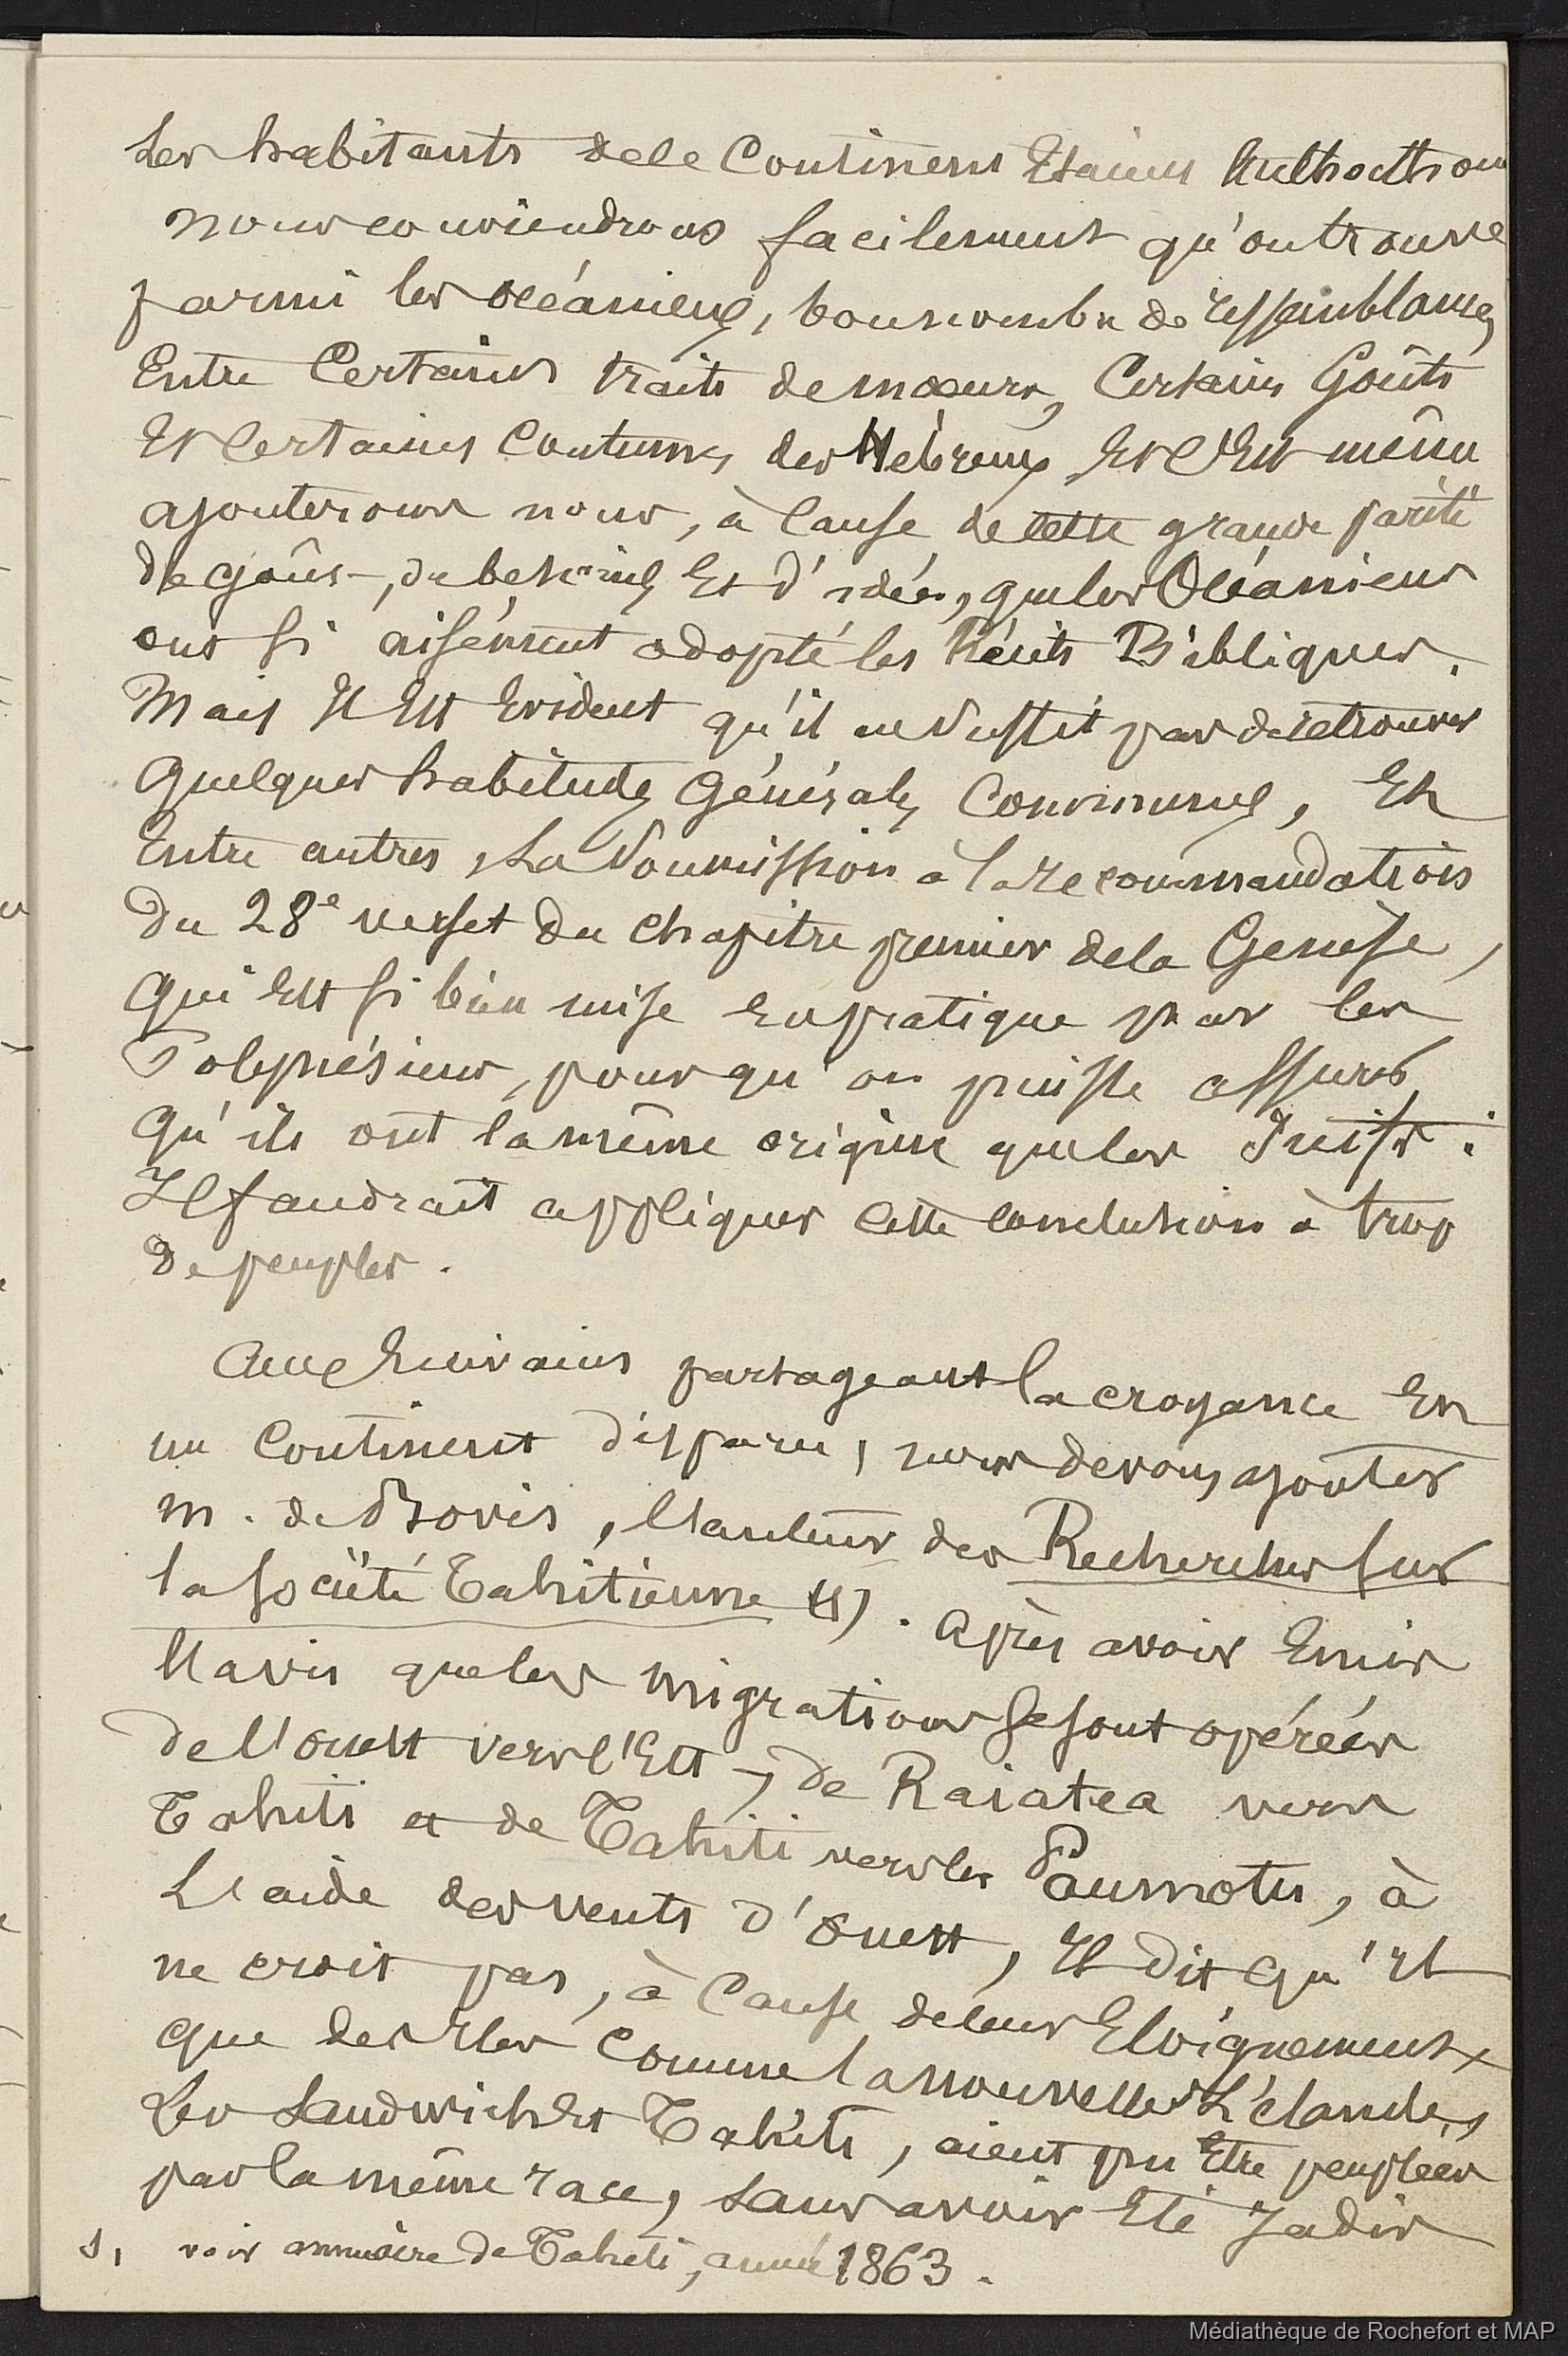 Les habitants de ce Continent Etaient Authocthones
nous conviendrons facilement qu'on trouve
parmi les océaniens, bon nombre de ressemblances
Entre Certains traits de mœurs, Certains Goûts
Et Certaines Coutumes des Hébreux Et C'Est même
ajouterons nous, à Cause de cette grande parité
de goûts, de besoins Et d'idées, que les Océaniens
ont si aisément adopté les Récits Bibliques.
Mais Il Est Evident qu'il ne Suffit pas de retrouver
quelques habitudes Générales Communes, Et
Entre autres, La Soumission à la recommandation
du 28e verset du Chapitre premier de la Genèse,
qui Est si bien mise En pratique par les
Polynésiens, pour qu'on puisse assurer
qu'ils ont la même origine que les Juifs :
Il faudrait appliquer Cette conclusion à trop
de peuples.
Aux Ecrivains partageant la croyance En
un Continent disparu, nous devons ajouter
m. de Bovis, l'auteur des Recherches sur
la société Tahitienne (1). Après avoir Emis
l'avis que les migrations se sont opérées
de l'ouest vers l'Est, de Raiatea vers
Tahiti et de Tahiti vers les Paumotu, à
L'aide des vents d'ouest, Il dit qu'Il
ne croit pas, à Cause de leur Eloignement,
que des Iles Comme la nouvelle Zélande,
Les Sandwich Et Tahiti, aient pu Etre peuplées
par la même race, sans avoir Eté Jadis
1, voir annuaire de Tahiti, année 1863.
Médiathèque de Rochefort et MAP